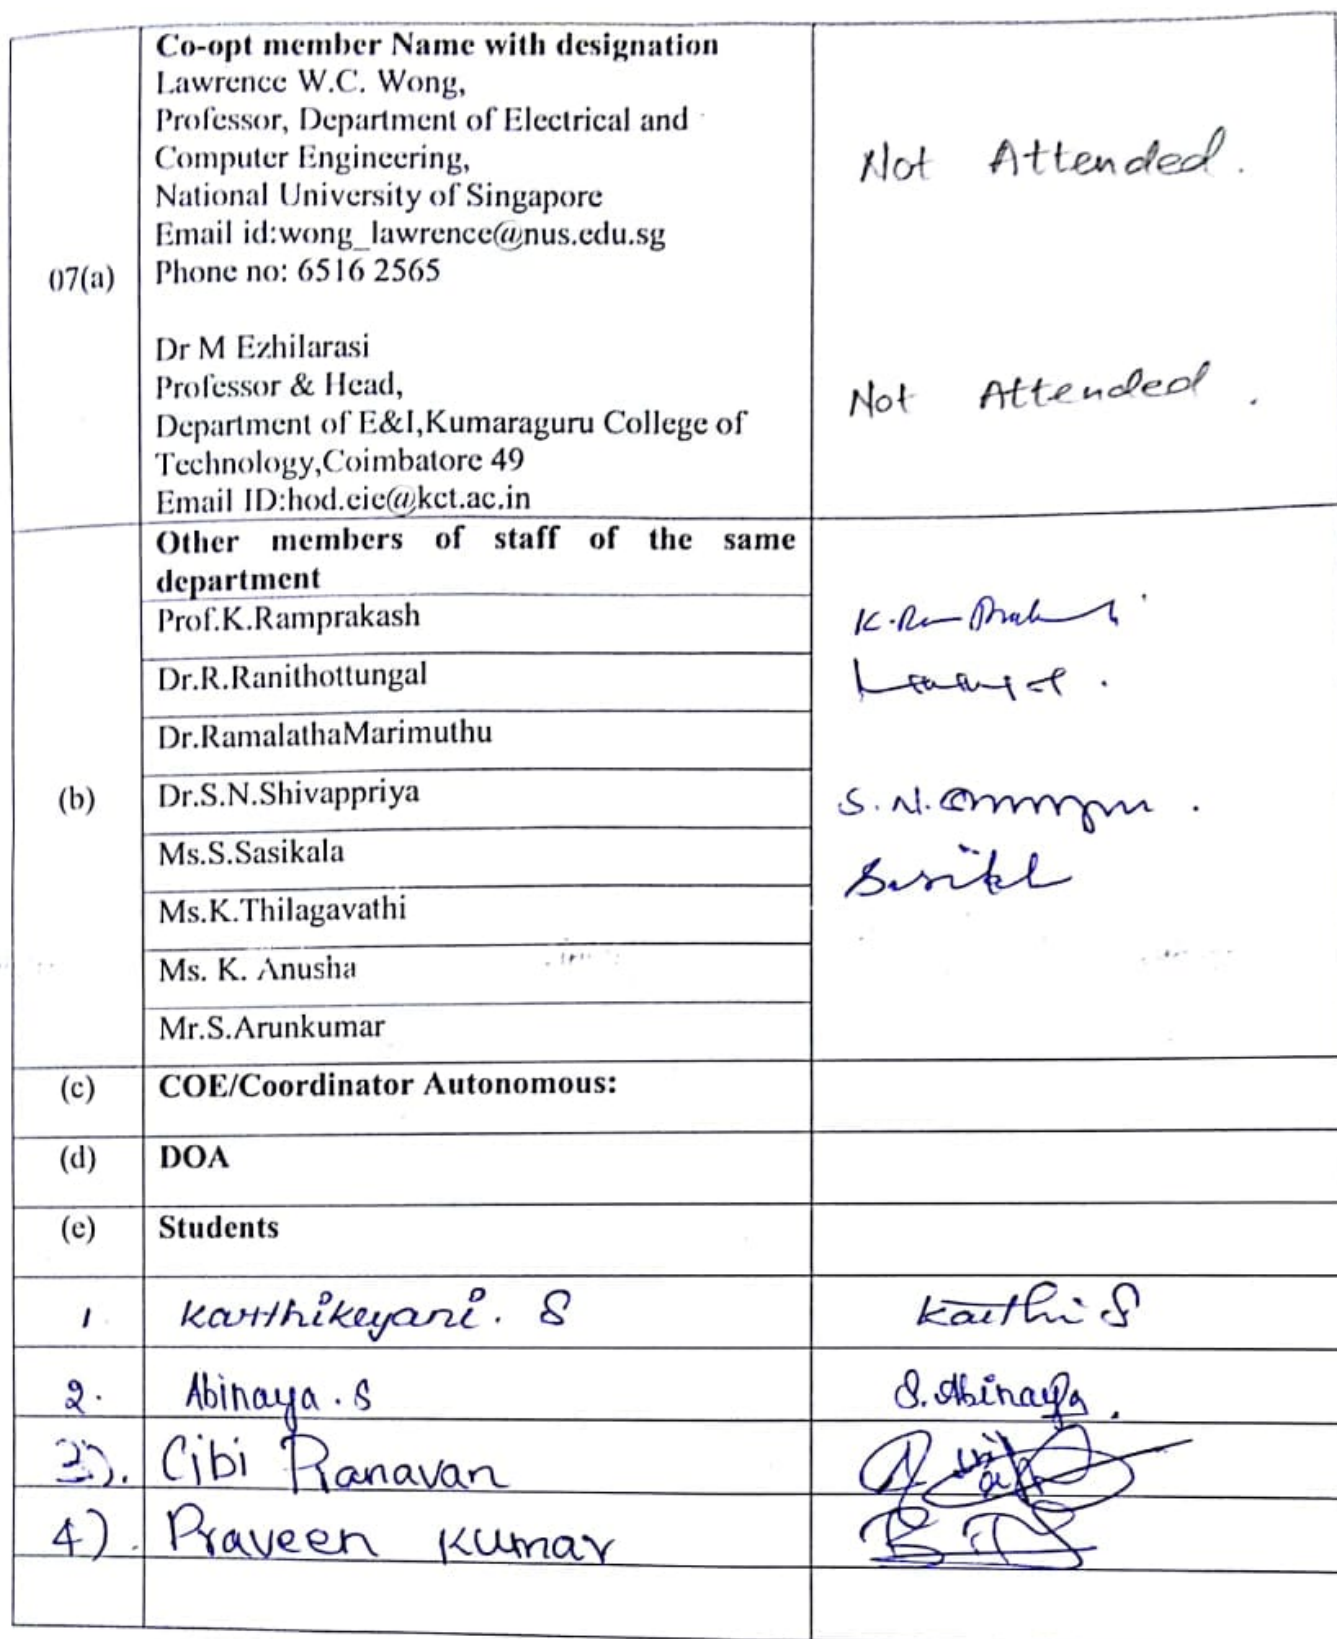 Co-opt member Name with designation
Lawrence W.C. Wong,
Professor, Department of Electrical and
Computer Engineering,
National University of Singapore
Email id:wong_lawrence@nus.edu.sg
07(a) Phone no: 6516 2565
Not Attended.
Dr M Ezhilarasi
Professor & Head,
Department of E&I,Kumaraguru College of
Technology,Coimbatore 49
Email ID:hod.eie@kct.ac.in
Not Attended.
Other members of staff of the same
department
Prof.K.Ramprakash
Dr.R.Ranithottungal
Dr.RamalathaMarimuthu
(b) Dr.S.N.Shivappriya S.N.
Ms.S.Sasikala
Ms.K.Thilagavathi
Ms. K. Anusha
Mr.S.Arunkumar
(c) COE/Coordinator Autonomous:
(d) DOA
(e) Students
1 Karthikeyani. S Karthi S
2. Abinaya. S S.Abinaya.
3). Cibi Pranavan
4). Praveen Kumar